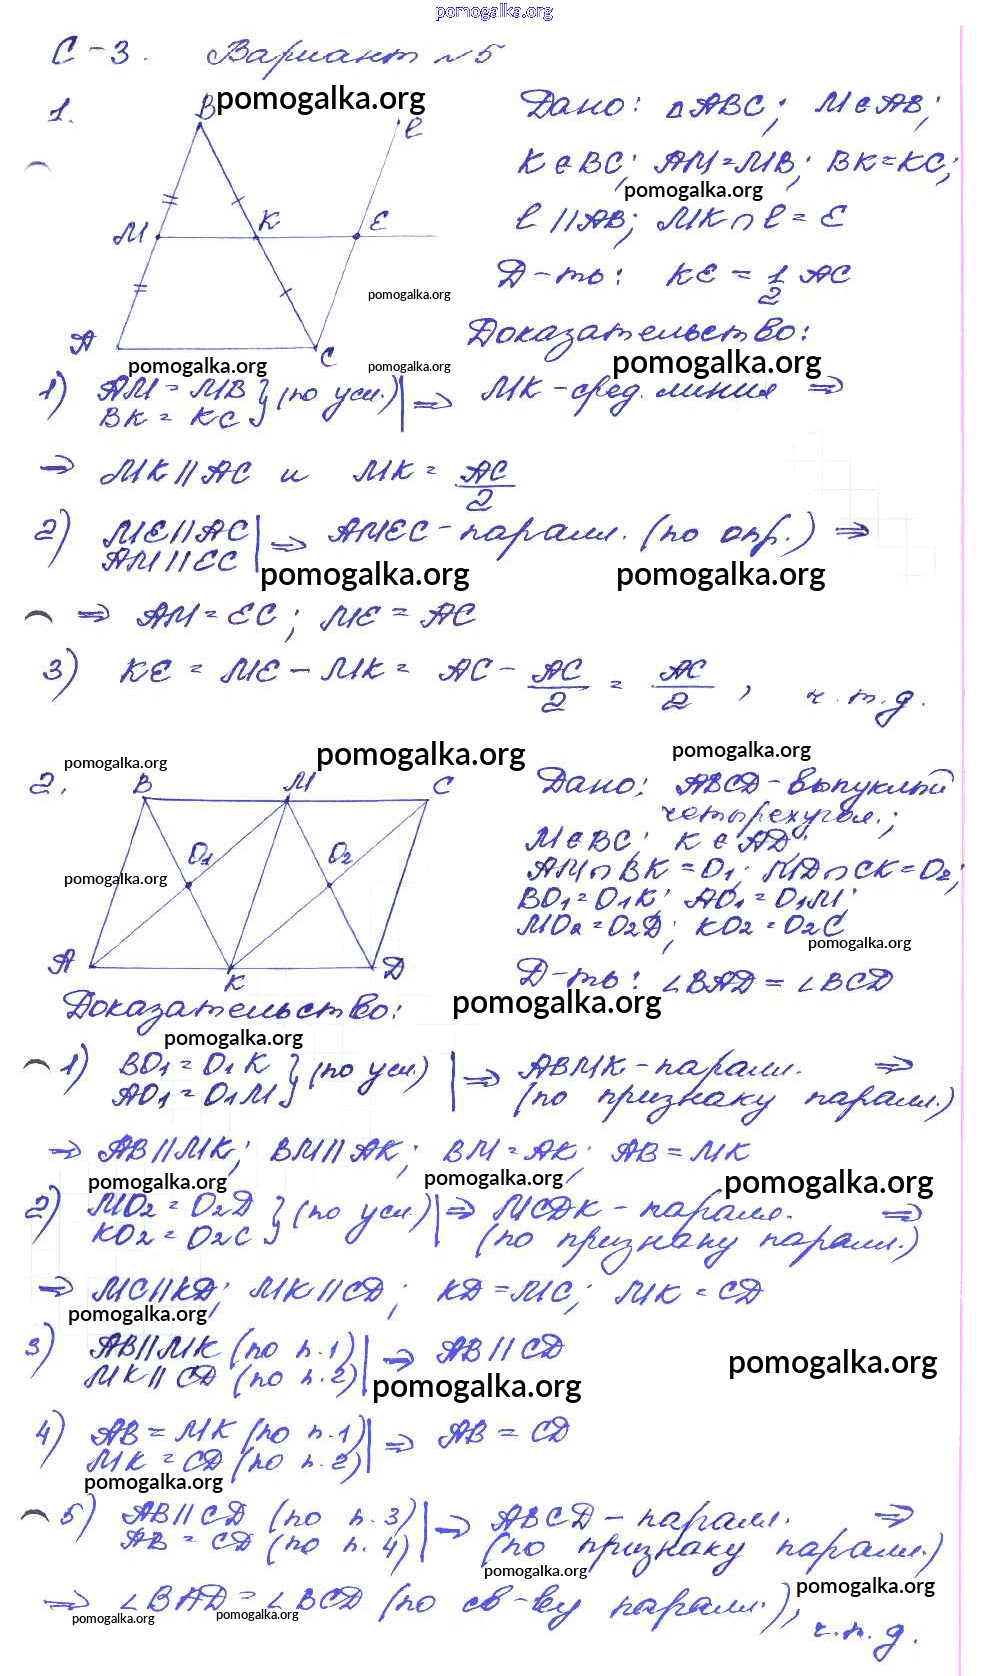 pomogalka.org
С-3. Вариант №5
1.
B pomogalka.org
l
M
K
E
pomogalka.org
A
C
pomogalka.org
pomogalka.org
Дано: △ABC; M∈AB;
K∈BC; AM=MB; BK=KC;
pomogalka.org
l//AB; MK∩l=E
Д-ть: KE = 1/2 AC
Доказательство:
pomogalka.org
1) AM = MB } (по усл.) | ⇒ MK-сред. линия ⇒
BK = KC
⇒ MK//AC и MK = AC/2
2) ME//AC | ⇒ AMEC-паралл. (по опр.) ⇒
AM//EC
pomogalka.org pomogalka.org
⇒ AM=EC; ME=AC
3) KE = ME - MK = AC - AC/2 = AC/2, ч.т.д.
pomogalka.org pomogalka.org pomogalka.org
2.
B M C
O1 O2
pomogalka.org
A K Д
Дано: ABCД-выпуклый
четырехугол.;
M∈BC; K∈AД
AM∩BK=O1; MД∩CK=O2;
BO1=O1K; AO1=O1M;
MO2=O2Д; KO2=O2C
pomogalka.org
Д-ть: ∠BAД=∠BCД
pomogalka.org
Доказательство:
pomogalka.org
1) BO1=O1K } (по усл) | ⇒ ABMK-паралл. ⇒
AO1=O1M (по признаку паралл.)
⇒ AB//MK; BM//AK; BM=AK; AB=MK
pomogalka.org pomogalka.org pomogalka.org
2) MO2=O2Д } (по усл.) | ⇒ MCДK-паралл. ⇒
KO2=O2C (по признаку паралл.)
⇒ MC//KД; MK//CД; KД=MC; MK=CД
pomogalka.org
3) AB//MK (по п.1) | ⇒ AB//CД
MK//CД (по п.2)
pomogalka.org
pomogalka.org
4) AB=MK (по п.1) | ⇒ AB=CД
MK=CД (по п.2)
pomogalka.org
5) AB//CД (по п.3) | ⇒ ABCД-паралл. ⇒
AB=CД (по п.4) (по признаку паралл.)
pomogalka.org
pomogalka.org
⇒ ∠BAД=∠BCД (по св-ву паралл.), ч.т.д.
pomogalka.org pomogalka.org